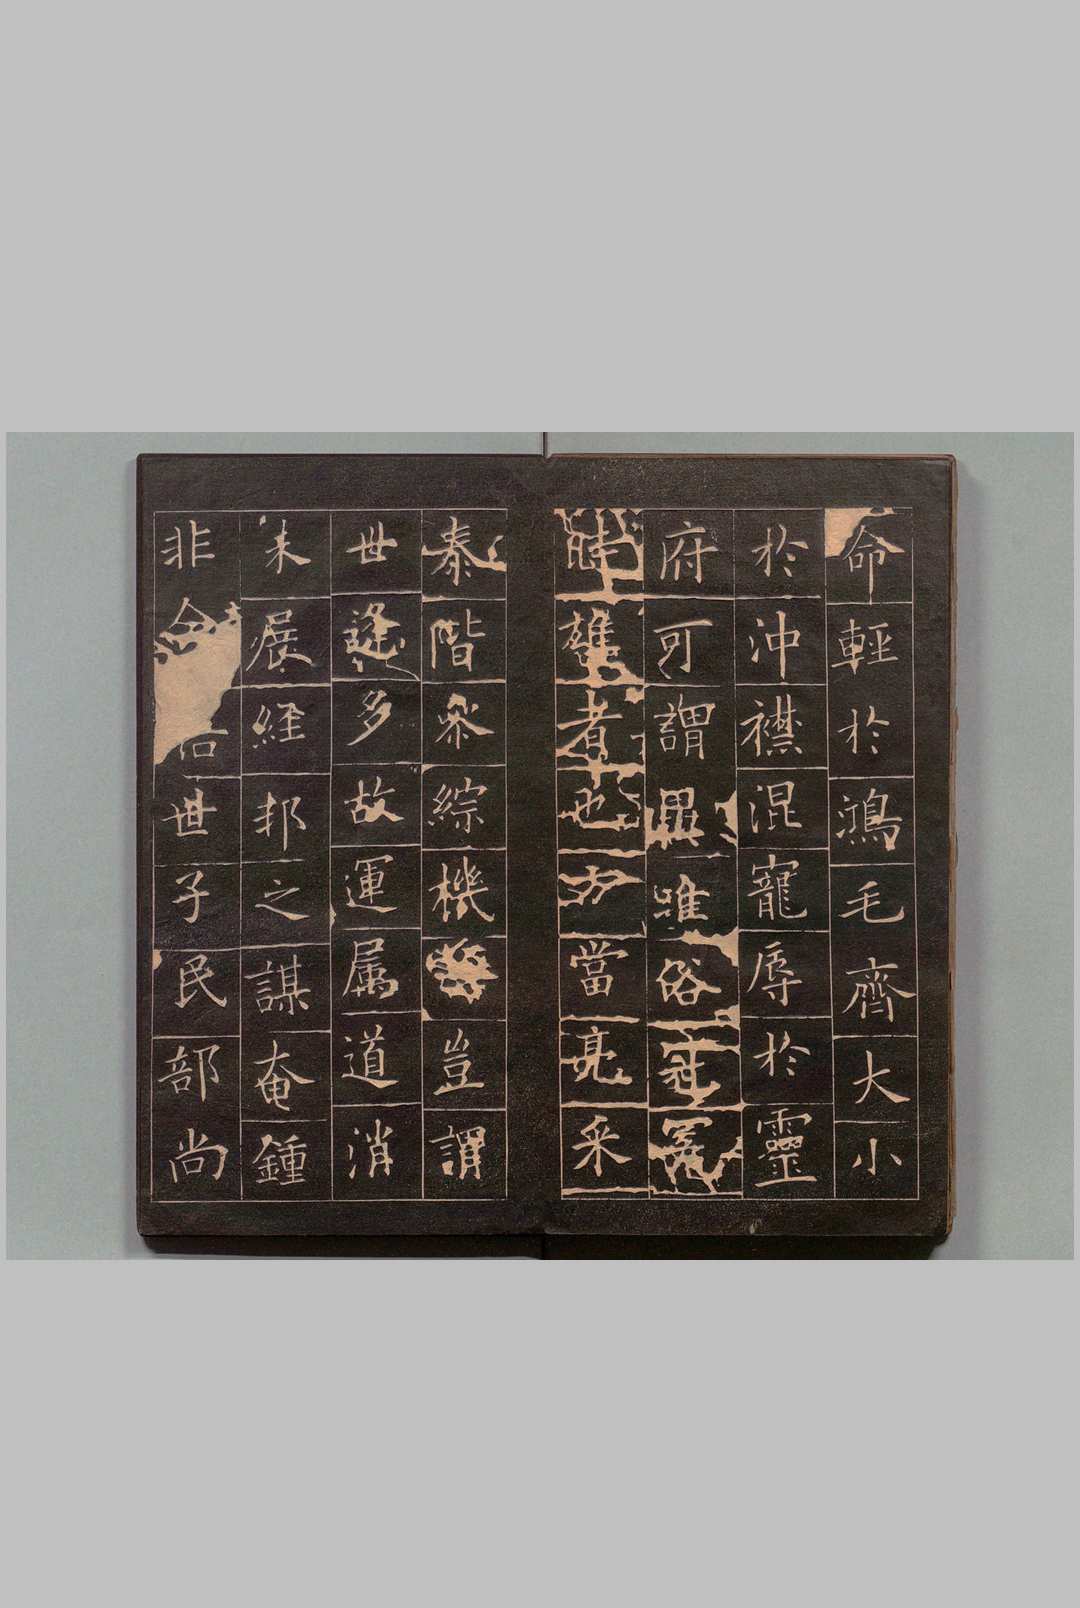 命輕於鴻毛齊大小
於沖襟混寵辱於靈
府可謂雅俗冠冕
時者也方當亮采
泰階參綜機務豈謂
世逢多故運属道消
未展經邦之謀奄鍾
非世子民部尚